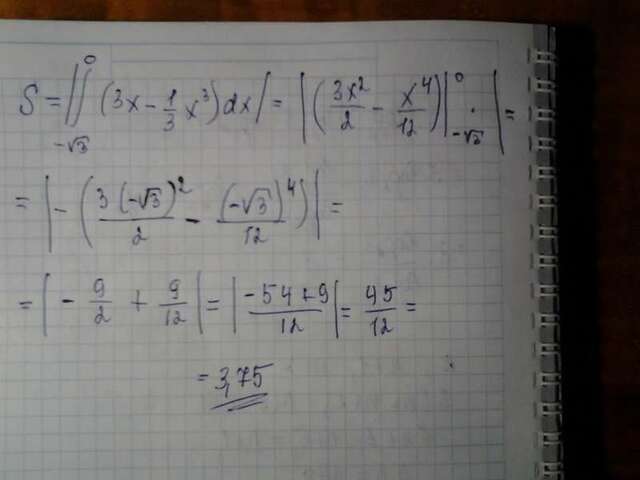 S = |∫_{-√3}^{0} (3x - 1/3 x³)dx| = |(3x²/2 - x⁴/12)|_{-√3}^{0}| =
= |-(3(-√3)²/2 - (-√3)⁴/12)| =
= |-9/2 + 9/12| = |-54+9/12| = 45/12 =
= 3,75